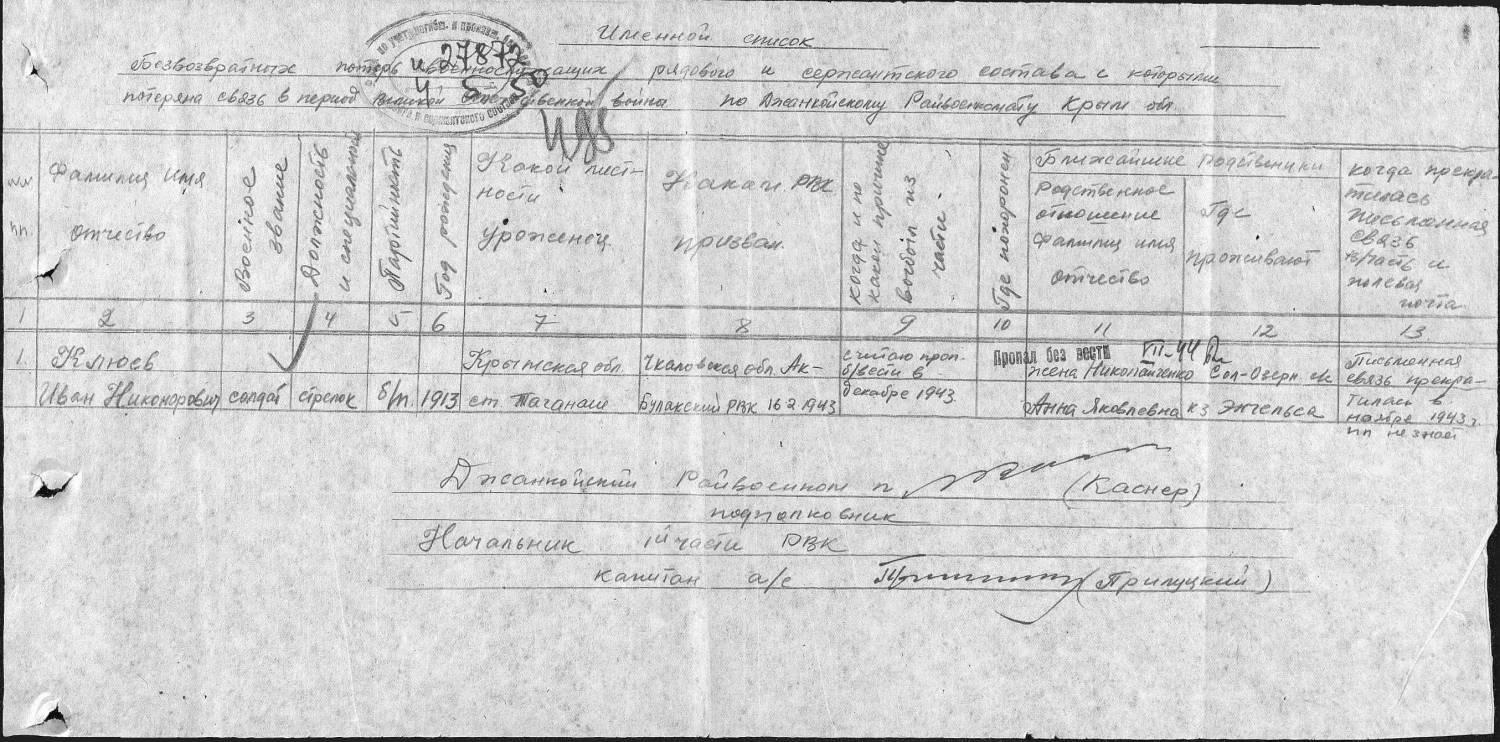 Именной список
Безвозвратных потерь военнослужащих рядового и сержантского состава с которыми
потеряна связь в период Великой Отечественной война по Джанкойскому Райвоенкомату Крым обл
по учету погибш. и пропавш.
и сержантского состава
27872
4 5 50
№№ пп.
Фамилия имя отчество
Военное звание
Должность и специальность
Партийность
Год рождения
Какой мест-
ности
уроженец.
Каким РВК
призван.
когда и по
какой причине
выбыл из
части.
Где похоронен
Ближайшие родственники
Родственное
отношение
фамилия имя
отчество
Где
проживают
когда прекра-
тилась
письменная
связь
в/часть и
полевая
почта
1 2 3 4 5 6 7 8 9 10 11 12 13
1. Клюев Крымская обл. Чкаловская обл. Ак- считаю проп. Пропал без вести VII-44 Письменная
Иван Никонорович солдат стрелок б/п 1913 ст. Таганаш Булакский РВК 16 2 1943 б/вести в декабре 1943 жена Николайченко Анна Яковлевна Сол-Озерн кз Энгельса связь прекра-
тилась в
ноябре 1943 г.
пп не знает
Джанкойский Райвоенком п (Каснер)
подполковник
Начальник III части РВК
капитан а/с (Прилуцкий)